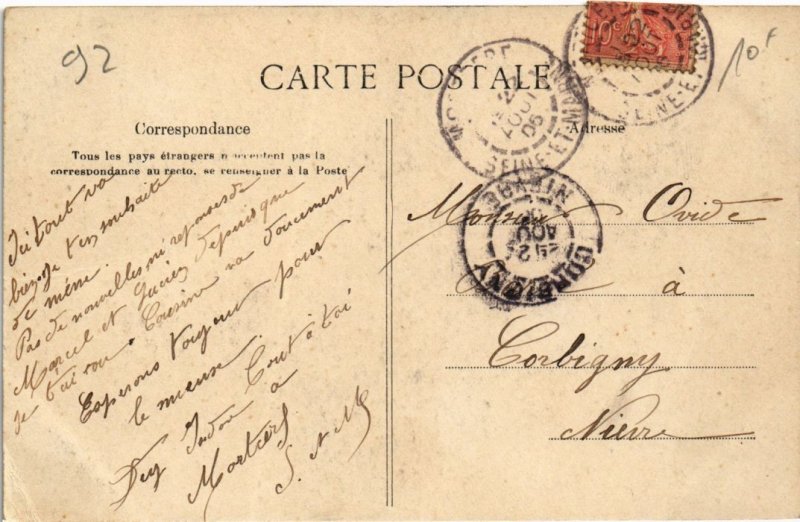 92
10F
CARTE POSTALE
Correspondance
Adresse
Tous les pays étrangers n'acceptent pas la
correspondance au recto, se renseigner à la Poste
Ici tout va
bien. Je t'en souhaite
de même.
Pas de nouvelles ni réponse de
Marcel et Lucien depuis que
je t'ai vu. Cousine va doucement
Espérons toujours pour
le mieux.
Tout à toi
à
Mortcerf
S. et M.
Monsieur Ovide
à
Corbigny
Nièvre
10c
MORTCERF
AOUT
05
SEINE-ET-MARNE
SEINE-E
CORBIGNY
AOUT
NIEVRE